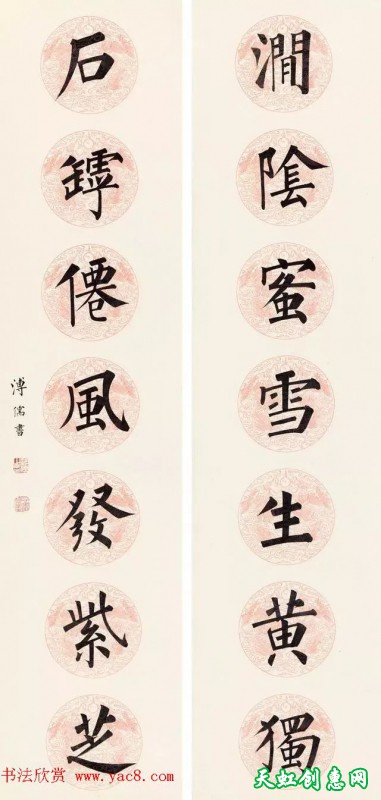 澗陰蜜雪生黄獨
石罅僊風發紫芝
溥儒書
书法欣赏 www.yac8.com
天虹创惠网